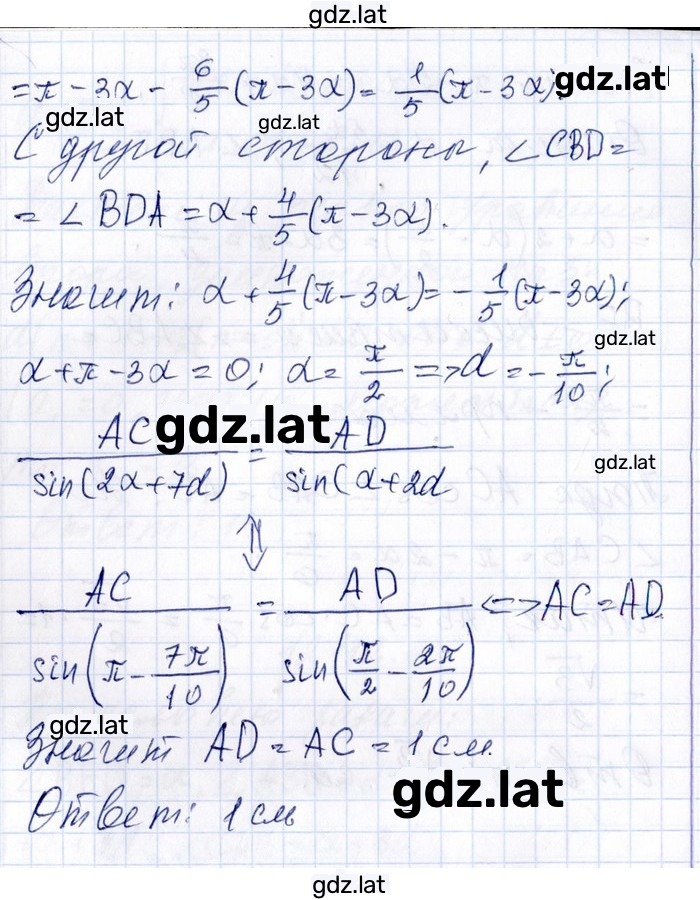 gdz.lat
= π - 3α - 6/5 (π - 3α) = 1/5 (π - 3α). gdz.lat
gdz.lat gdz.lat
С другой стороны, ∠CBD =
= ∠BDA = α + 4/5 (π - 3α).
Значит: α + 4/5 (π - 3α) = - 1/5 (π - 3α);
gdz.lat
α + π - 3α = 0; α = π/2 => d = - π/10;
AC/sin(2α + 7d) = AD/sin(α + 2d
gdz.lat
gdz.lat
⇕
AC/sin(π - 7π/10) = AD/sin(π/2 - 2π/10) <=> AC = AD
gdz.lat
Значит AD = AC = 1 см.
gdz.lat
Ответ: 1 см
gdz.lat